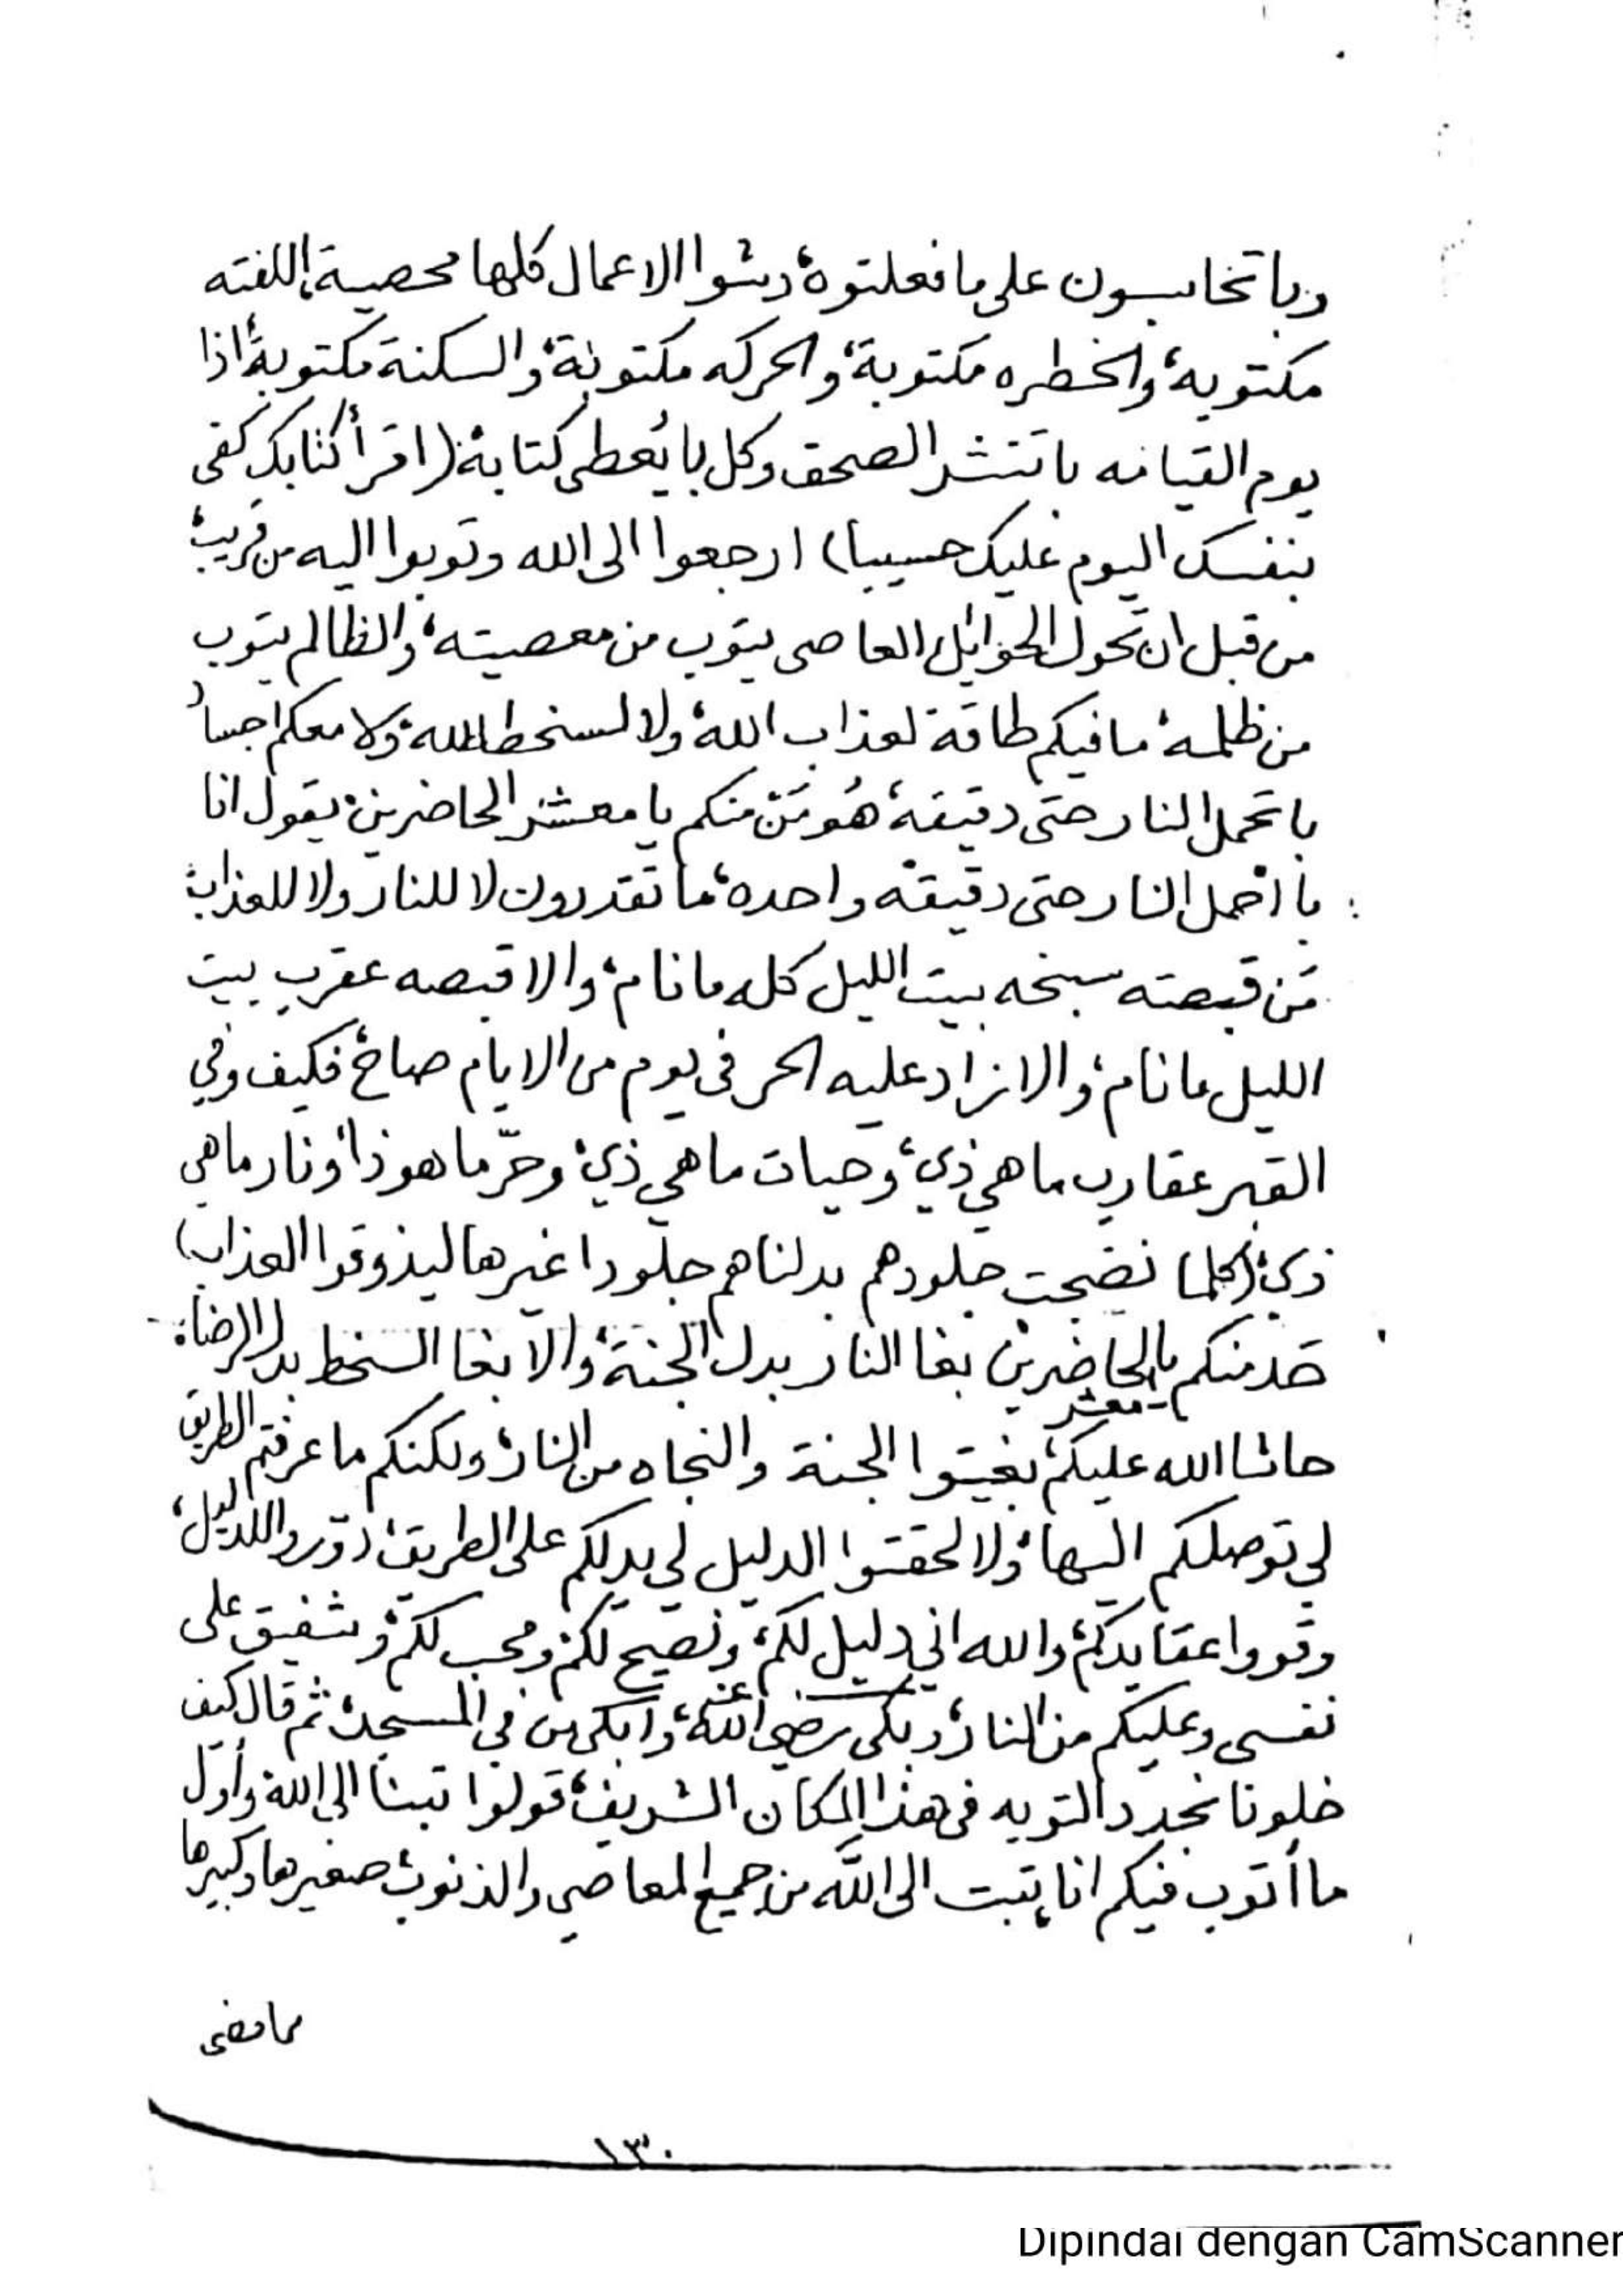 وبا تحاسبون على ما فعلتوه، دشوا الاعمال كلها محصية، اللفته
مكتوبه، والخطره مكتوبة، والحركه مكتوبة، والسكنة مكتوبة، اذا
يوم القيامه با تنتشر الصحف وكل با يُعطى كتابه، (اقرأ كتابك كفى
بنفسك اليوم عليك حسيبا) ارجعوا الى الله وتوبوا اليه من قريب،
من قبل ان تحول الحوائل، العاصى يتوب من معصيته، والظالم يتوب
من ظلمه، ما فيكم طاقة لعذاب الله، ولا لسخط الله، ولا معكم اجساد
با تحمل النار حتى دقيقه، هُو مَنْ منكم يا معشر الحاضرين، يقول انا
با احمل النار حتى دقيقه واحده، ما تقدرون لا للنار ولا للعذاب،
مَن قبصته سبخه بيت الليل كله ما نام، والا قبصه عقرب بيت
الليل ما نام، والا زاد عليه الحر فى يوم من الايام صاح، فكيف وفي
القبر عقارب ما هي ذي، وحيات ما هي ذي، وحرّ ما هو ذا، ونار ما هي
ذي، (كلما نضجت جلودهم بدلناهم جلودا غيرها ليذوقوا العذاب)
حَد منكم يا معشر الحاضرين بغا النار بدل الجنة، والا بغا السخط بدل الرضا،
حاشا الله عليكم، بغيتوا الجنة والنجاه من النار، ولكنكم ما عرفتم الطريق
لي توصلكم اليها، ولا لحقتوا الدليل لي يدلكم على الطريق، دوّروا للدليل،
وقووا عقايدكم، والله اني دليل لكم، ونصيح لكم، ومحب لكم، وشفيق على
نفسى وعليكم من النار، وبكى رضي الله عنه، وابكى من في المسجد، ثم قال كيف
خلونا نجدد التوبه فى هذا المكان الشريف، قولوا تبنا الى الله، وأول
ما أتوب فيكم انا، تبت الى الله من جميع المعاصي والذنوب، صغيرها وكبيرها
ما مضى
١٣٠
Dipindai dengan CamScanner